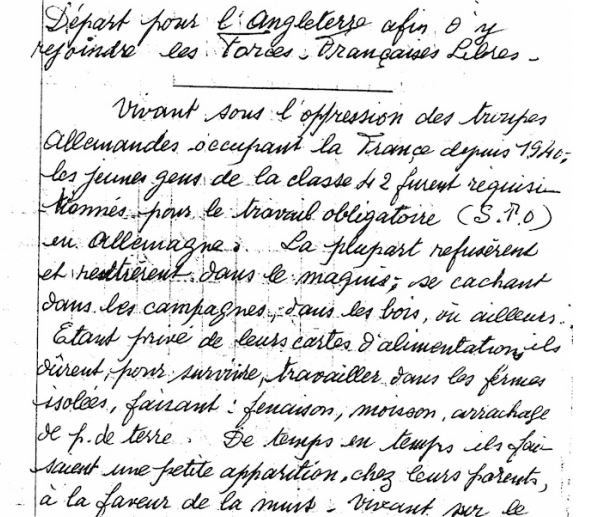 Départ pour l'Angleterre afin d'y
rejoindre les Forces Françaises Libres -
Vivant sous l'oppression des troupes
Allemandes occupant la France depuis 1940,
les jeunes gens de la classe 42 furent réquisi-
tionnés pour le travail obligatoire (S.T.O)
en Allemagne. La plupart refusèrent
et rentrèrent dans le maquis, se cachant
dans les campagnes, dans les bois, ou ailleurs.
Etant privé de leurs cartes d'alimentation, ils
dûrent, pour survivre, travailler dans les fermes
isolées, faisant : fenaison, moisson, arrachage
de p. de terre. De temps en temps ils fai-
saient une petite apparition, chez leurs parents,
à la faveur de la nuit - Vivant sur le